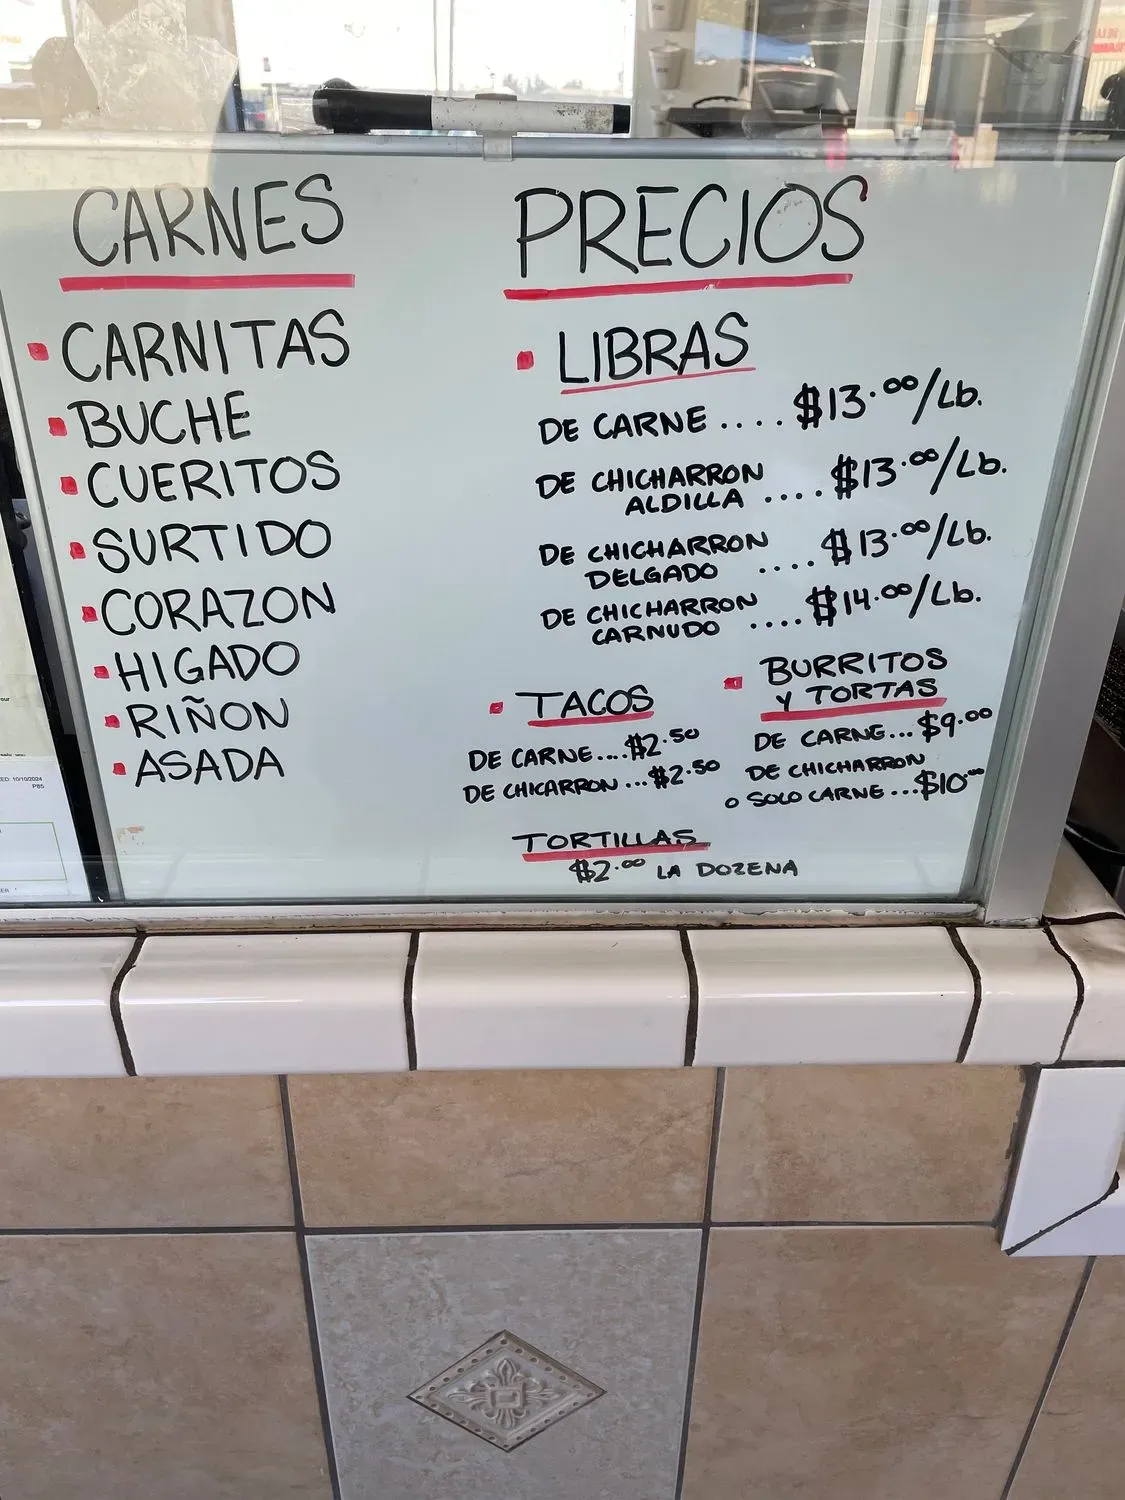 CARNES
• CARNITAS
• BUCHE
• CUERITOS
• SURTIDO
• CORAZON
• HIGADO
• RIÑON
• ASADA
PRECIOS
• LIBRAS
DE CARNE .... $13.00/Lb.
DE CHICHARRON
ALDILLA .... $13.00/Lb.
DE CHICHARRON
DELGADO .... $13.00/Lb.
DE CHICHARRON
CARNUDO .... $14.00/Lb.
• TACOS
DE CARNE....$2.50
DE CHICARRON ...$2.50
• BURRITOS
Y TORTAS
DE CARNE...$9.00
DE CHICHARRON
O SOLO CARNE ...$10.00
TORTILLAS
$2.00 LA DOZENA
10/10/2024